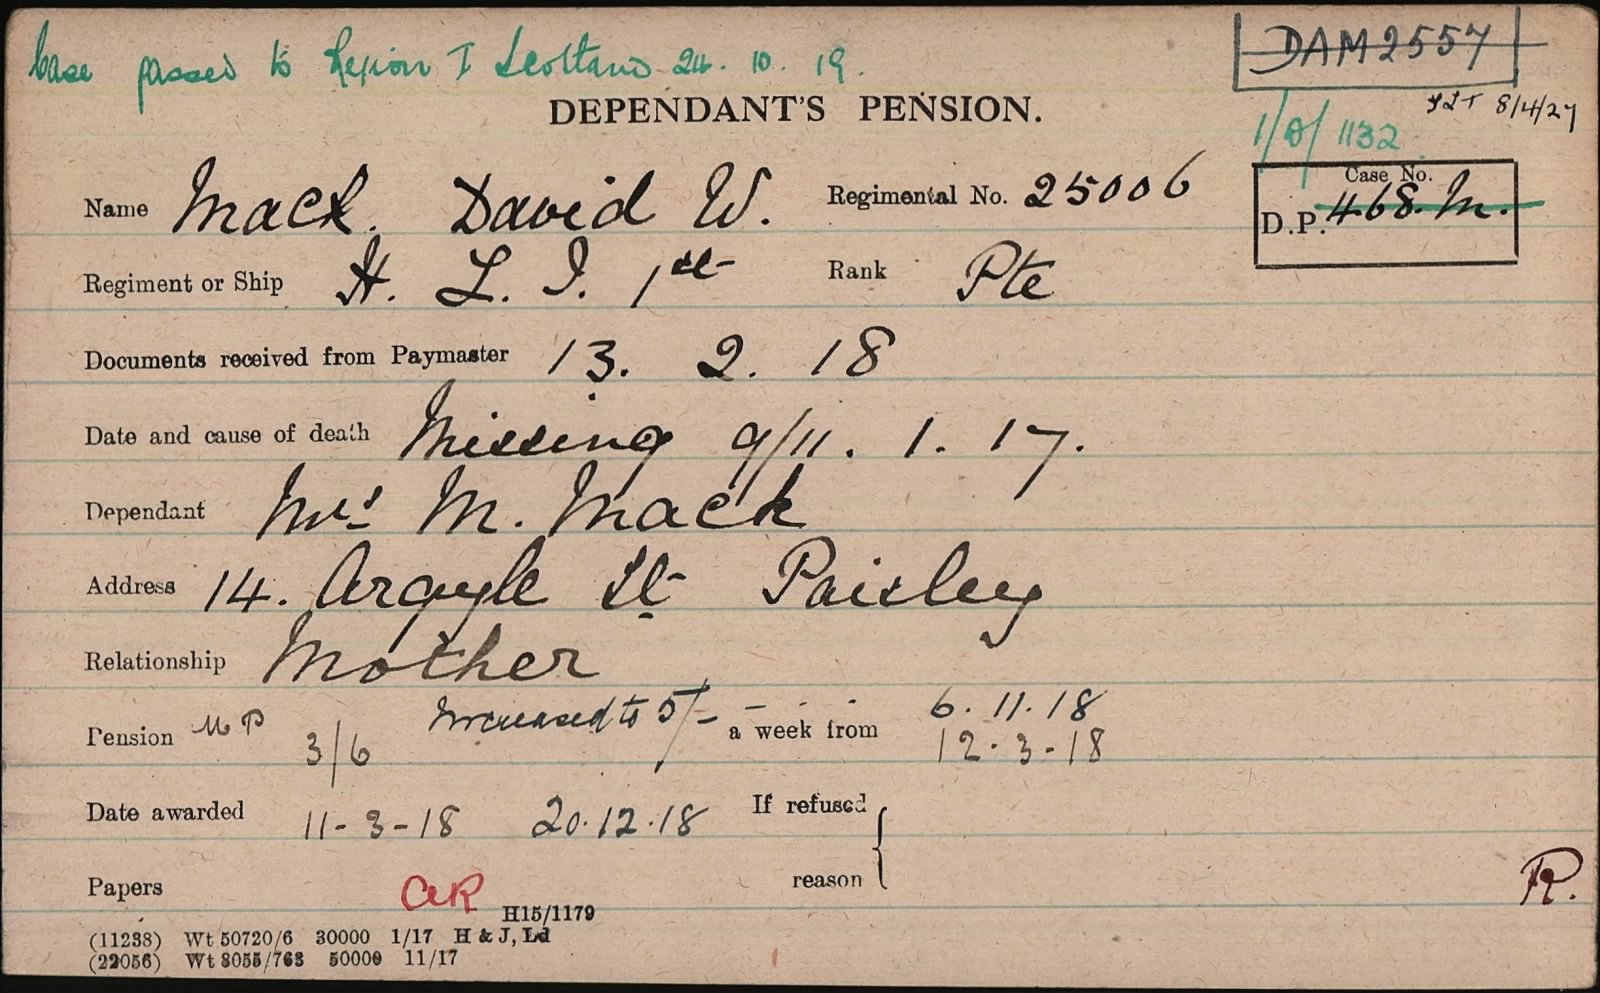 Case passed to Region I Scotland 24. 10. 19.
DAM 2557
8/4/27
DEPENDANT'S PENSION.
1/D/ 1132
Name Mack. David W. Regimental No. 25006
Case No.
D.P. 468. M.
Regiment or Ship H. L. I. 1st Rank Pte
Documents received from Paymaster 13. 2. 18
Date and cause of death Missing 9/11. 1. 17.
Dependant Mrs M. Mack
Address 14. Argyle St Paisley
Relationship Mother
Increased to 5/- 6. 11. 18
Pension M P 3/6 a week from 12-3-18
Date awarded 11-3-18 20.12.18 If refused
reason
Papers AR R.
H15/1179
(11238) Wt 50720/6 30000 1/17 H & J, Ld
(22056) Wt 8055/763 50000 11/17